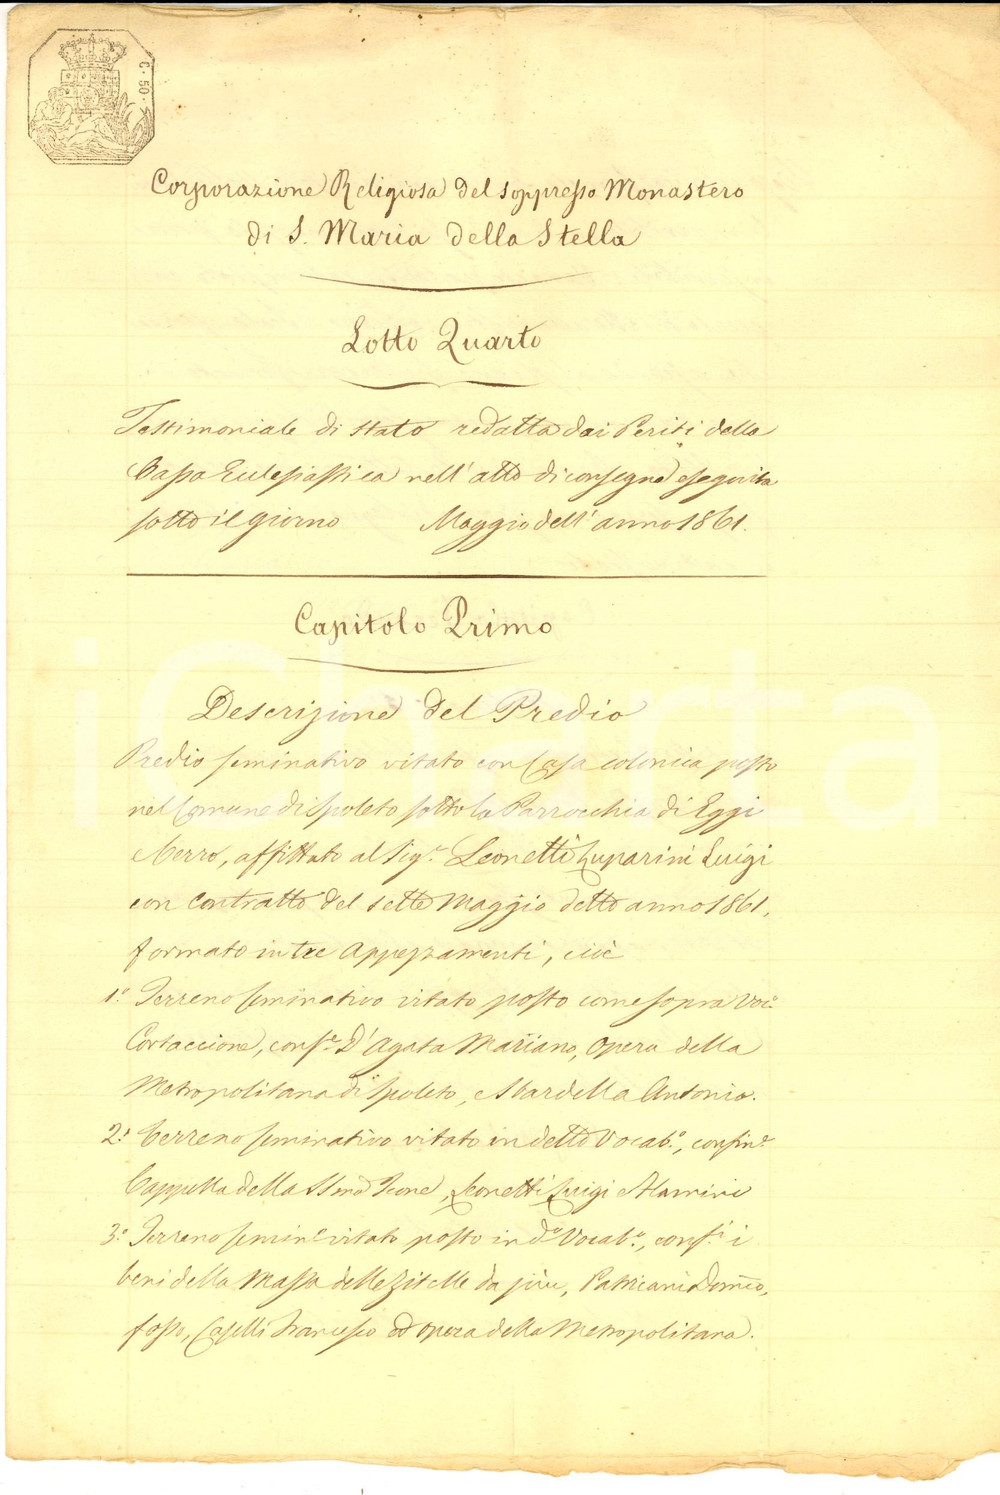 C. 50.
Corporazione Religiosa del soppresso Monastero
di S. Maria della Stella
Lotto Quarto
Testimoniale di stato redatta dai Periti della
Cassa Eclesiastica nell'atto di consegna eseguita
sotto il giorno Maggio dell'anno 1861.
Capitolo Primo
Descrizione del Predio
Predio seminativo vitato con Casa colonica posto
nel Comune di Spoleto sotto la Parrocchia di Eggi
e Cerro, affittato al Sigr. Leonetti Luparini Luigi
con contratto del sette Maggio detto anno 1861,
formato in tre Appezzamenti, cioè
1.° Terreno seminativo vitato posto come sopra Voc.°
Cortaccione, conf.e D'Agata Mariano, Opera della
Metropolitana di Spoleto, e Sbardella Antonio.
2.° Terreno seminativo vitato in detto Vocab.°, confin.e
Cappella della SSma Icone, Leonetti Luigi e
3.° Terreno semin.o vitato posto in d.o Vocab.o, conf.i i
beni della Massa delle Zitelle da più, Patriani Domco,
fosso, Caselli Francesco ed Opera della Metropolitana.
iCharta